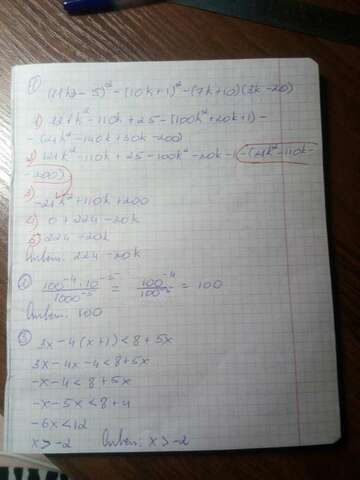 ①
(11k - 5)² - (10k+1)² - (7k+10)(3k-20)
1) 121k² - 110k + 25 - (100k² + 20k + 1) -
- (21k² - 140k + 30k - 200)
2) 121k² - 110k + 25 - 100k² - 20k - - (21k² - 110k -
- 200)
3)
-21k² + 110k + 200
4) 0 + 224 - 20k
5) 224 - 20k
Ответ: 224 - 20k
100⁻⁴ · 10⁻⁵ / 1000⁻⁵ = 100⁻⁴ / 100⁻⁵ = 100
Ответ: 100
③ 3x - 4(x+1) < 8 + 5x
3x - 4x - 4 < 8 + 5x
-x - 4 < 8 + 5x
-x - 5x < 8 + 4
-6x < 12
x > -2 Ответ: x > -2